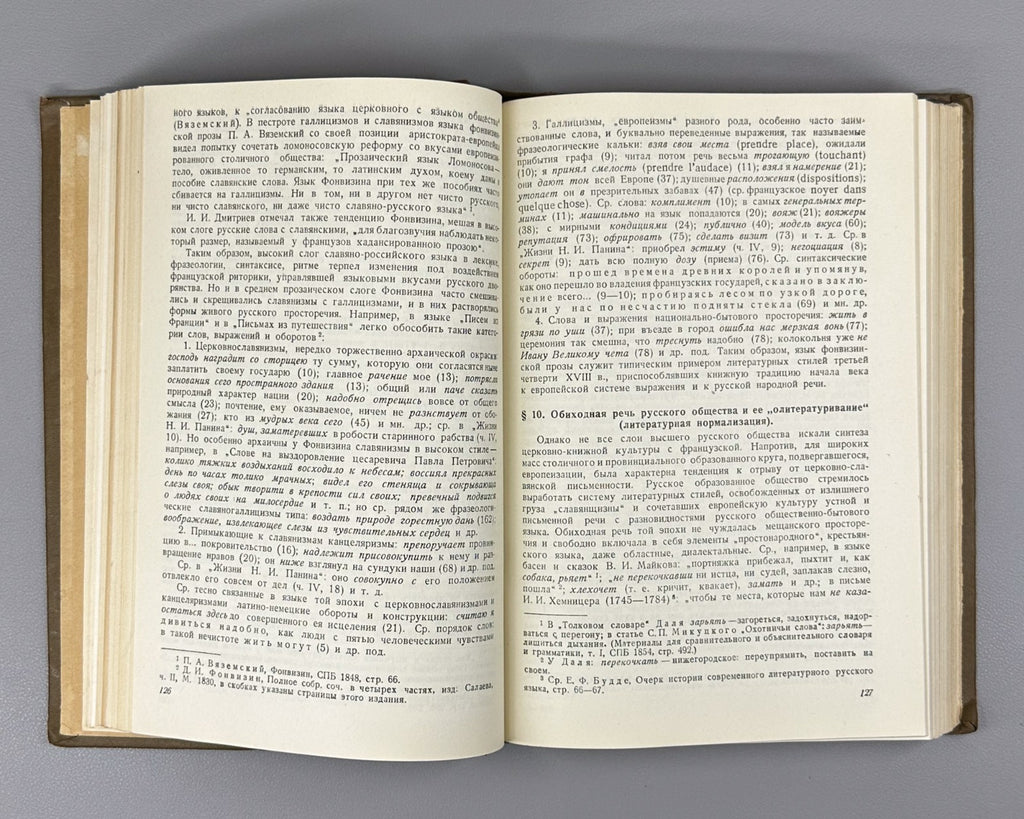 ного языков, к „согласованию языка церковного с языком общества“
(Вяземский). В пестроте галлицизмов и славянизмов языка фонвизин-
ской прозы П. А. Вяземский со своей позиции аристократа-европейца
видел попытку сочетать ломоносовскую реформу со вкусами европеизи-
рованного столичного общества: „Прозаический язык Ломоносова —
тело, оживленное то германским, то латинским духом, коему даны в
пособие славянские слова. Язык Фонвизина при тех же пособиях часто
сбивается на галлицизмы. Ни в том, ни в другом нет чисто русского,
ни чисто славянского, ни даже чисто славяно-русского языка“ ¹.
И. И. Дмитриев отмечал также тенденцию Фонвизина, мешая в высо-
ком слоге русские слова с славянскими, „для благозвучия наблюдать неко-
торый размер, называемый у французов кадансированной прозою“.
Таким образом, высокий слог славяно-российского языка в лексике,
фразеологии, синтаксисе, ритме терпел изменения под воздействием
французской риторики, управлявшей языковыми вкусами русского дво-
рянства. Но и в среднем прозаическом слоге Фонвизина часто смешива-
лись и скрещивались славянизмы с галлицизмами, и в них растворялись
формы живого русского просторечия. Например, в языке „Писем из
Франции“ и в „Письмах из путешествия“ легко обособить такие катего-
рии слов, выражений и оборотов ²:
1. Церковнославянизмы, нередко торжественно архаической окраски:
господь наградит со сторицею ту сумму, которую они согласятся ныне
заплатить своему государю (10); главное рачение мое (13); потрясли
основания сего пространного здания (13); общий или паче сказать
природный характер нации (20); надобно отрещись вовсе от общего
смысла (23); почтение, ему оказываемое, ничем не разнствует от обо-
жания (27); кто из мудрых века сего (45) и мн. др.; ср. в „Жизни
Н. И. Панина“: душ, заматеревших в робости старинного рабства (ч. IV,
10). Но особенно архаичны у Фонвизина славянизмы в высоком стиле —
например, в „Слове на выздоровление цесаревича Павла Петровича“:
колико тяжких воздыханий восходило к небесам; воссиял прекрасных
день по часах толико мрачных; видел его стеняща и сокрывающа
слезы своя; обык творити в крепости сил своих; превечный подвигся
о людях своих на милосердие и т. п.; но ср. рядом же фразеологи-
ческие славяногаллицизмы типа: воздать природе горестную дань (162);
воображение, извлекающее слезы из чувствительных сердец и др.
2. Примыкающие к славянизмам канцеляризмы: препоручает провин-
цию в... покровительство (16); надлежит присовокупить к нему и раз-
вращение нравов (20); он ниже взглянул на сундуки наши (68) и др. под.
Ср. в „Жизни Н. И. Панина“: оно совокупно с его положением
отвлекло его совсем от дел (ч. IV, 18) и т. д.
Ср. тесно связанные в языке той эпохи с церковнославянизмами и
канцеляризмами латино-немецкие обороты и конструкции: считаю я
остаться здесь до совершенного ея исцеления (21). Ср. порядок слов:
дивиться надобно, как люди с пятью человеческими чувствами
в такой нечистоте жить могут (5) и др. под.
¹ П. А. Вяземский, Фонвизин, СПБ 1848, стр. 66.
² Д. И. Фонвизин, Полное собр. соч. в четырех частях, изд. Салаева,
ч. II, М. 1830, в скобках указаны страницы этого издания.
126
3. Галлицизмы, „европеизмы“ разного рода, особенно часто заим-
ствованные слова, и буквально переведенные выражения, так называемые
фразеологические кальки: взяв свои места (prendre place), ожидали
прибытия графа (9); читал потом речь весьма трогающую (touchant)
(10); я принял смелость (prendre l'audace) (11); взял я намерение (21);
они дают тон всей Европе (37); душевные расположения (dispositions);
утопает он в презрительных забавах (47) (ср. французское noyer dans
quelque chose). Ср. слова: комплимент (10); в самых генеральных тер-
минах (11); машинально на язык попадаются (20); вояж (21); вояжеры
(38); с мирными кондициями (24); публично (40); модель вкуса (60);
репутация (73); офрировать (75); сделать визит (73) и т. д. Ср. в
„Жизни Н. И. Панина“: приобрел эстиму (ч. IV, 9); негоциация (8);
секрет (9); дать всю полную дозу (приема) (76). Ср. синтаксические
обороты: прошед времена древних королей и упомянув,
как оно перешло во владения французских государей, сказано в заклю-
чение всего... (9—10); пробираясь лесом по узкой дороге,
были у нас по несчастию подняты стекла (69) и мн. др.
4. Слова и выражения национально-бытового просторечия: жить в
грязи по уши (37); при въезде в город ошибла нас мерзкая вонь (77);
церемония так смешна, что треснуть надобно (78); колокольня уже не
Ивану Великому чета (78) и др. под. Таким образом, язык фонвизин-
ской прозы служит типическим примером литературных стилей третьей
четверти XVIII в., приспособлявших книжную традицию начала века
к европейской системе выражения и к русской народной речи.
§ 10. Обиходная речь русского общества и ее „олитературивание“
(литературная нормализация).
Однако не все слои высшего русского общества искали синтеза
церковно-книжной культуры с французской. Напротив, для широких
масс столичного и провинциального образованного круга, подвергавшегося,
европеизации, была характерна тенденция к отрыву от церковно-сла-
вянской письменности. Русское образованное общество стремилось
выработать систему литературных стилей, освобожденных от излишнего
груза „славянщизны“ и сочетавших европейскую культуру устной и
письменной речи с разновидностями русского общественно-бытового
языка. Обиходная речь той эпохи не чуждалась мещанского просторе-
чия и свободно включала в себя элементы „простонародного“, крестьян-
ского языка, даже областные, диалектальные. Ср., например, в языке
басен и сказок В. И. Майкова: „портняжка прибежал, пыхтит и, как
собака, рьяет“ ¹; „не перекочкавши ни истца, ни судей, заплакав слезно,
пошла“ ²; хлехочет (т. е. кричит, квакает), замать и др.; в письме
И. И. Хемницера (1745—1784) ³: „чтобы те места, которые нам не каза-
¹ В „Толковом словаре“ Даля зарьять — загореться, задохнуться, надор-
ваться с перегону; в статье С. П. Микуцкого „Охотничьи слова“: зарьять —
лишиться дыхания. (Материалы для сравнительного и объяснительного словаря
и грамматики, т. I, СПБ 1854, стр. 492.)
² У Даля: перекочкать — нижегородское: переупрямить, поставить на
своем.
³ Ср. Е. Ф. Будде, Очерк истории современного литературного русского
языка, стр. 66—67.
127